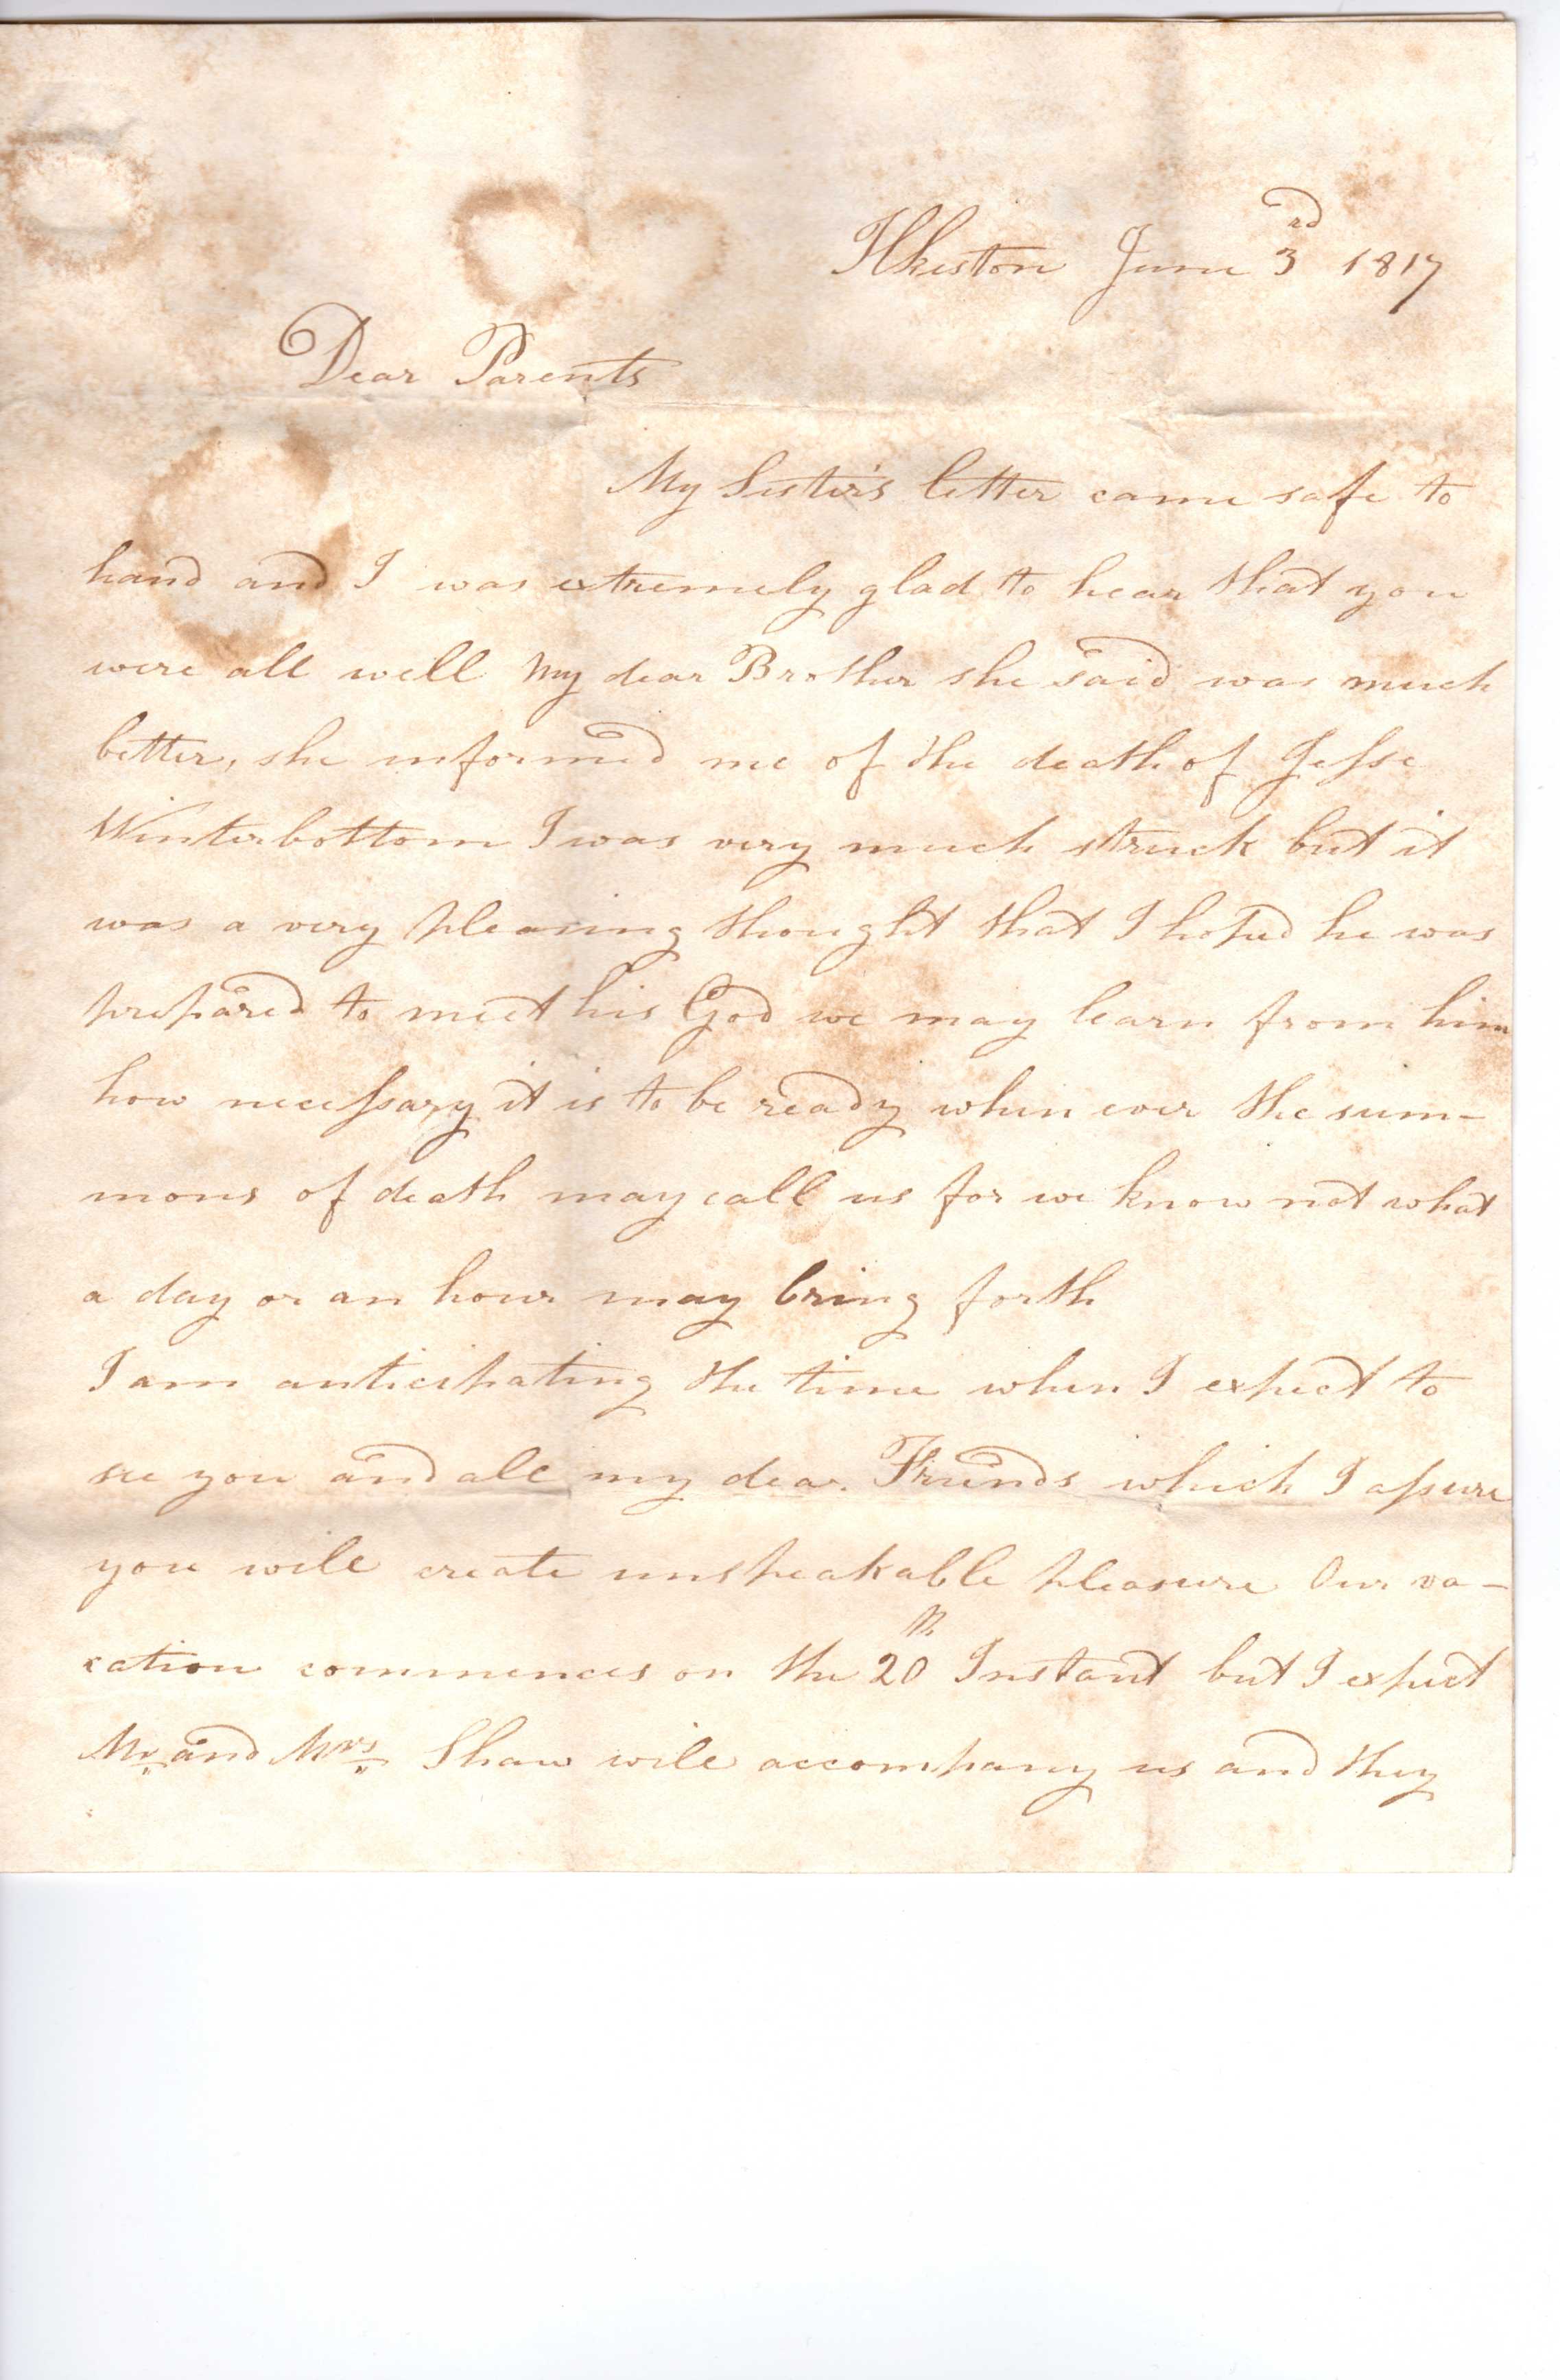 Ilkeston June 3rd 1817
Dear Parents
My Sister's letter came safe to
hand and I was extremely glad to hear that you
were all well My dear Brother she said was much
better, she informed me of the death of Jeſse
Winterbottom I was very much struck but it
was a very pleasing thought that I hoped he was
prepared to meet his God we may learn from him
how neceſsary it is to be ready when ever the sum-
mons of death may call us for we know not what
a day or an hour may bring forth
I am anticipating the time when I expect to
see you and all my dear Friends which I aſsure
you will create unspeakable pleasure Our va-
cation commences on the 20th Instant but I expect
Mr. and Mrs. Shaw will accompany us and they